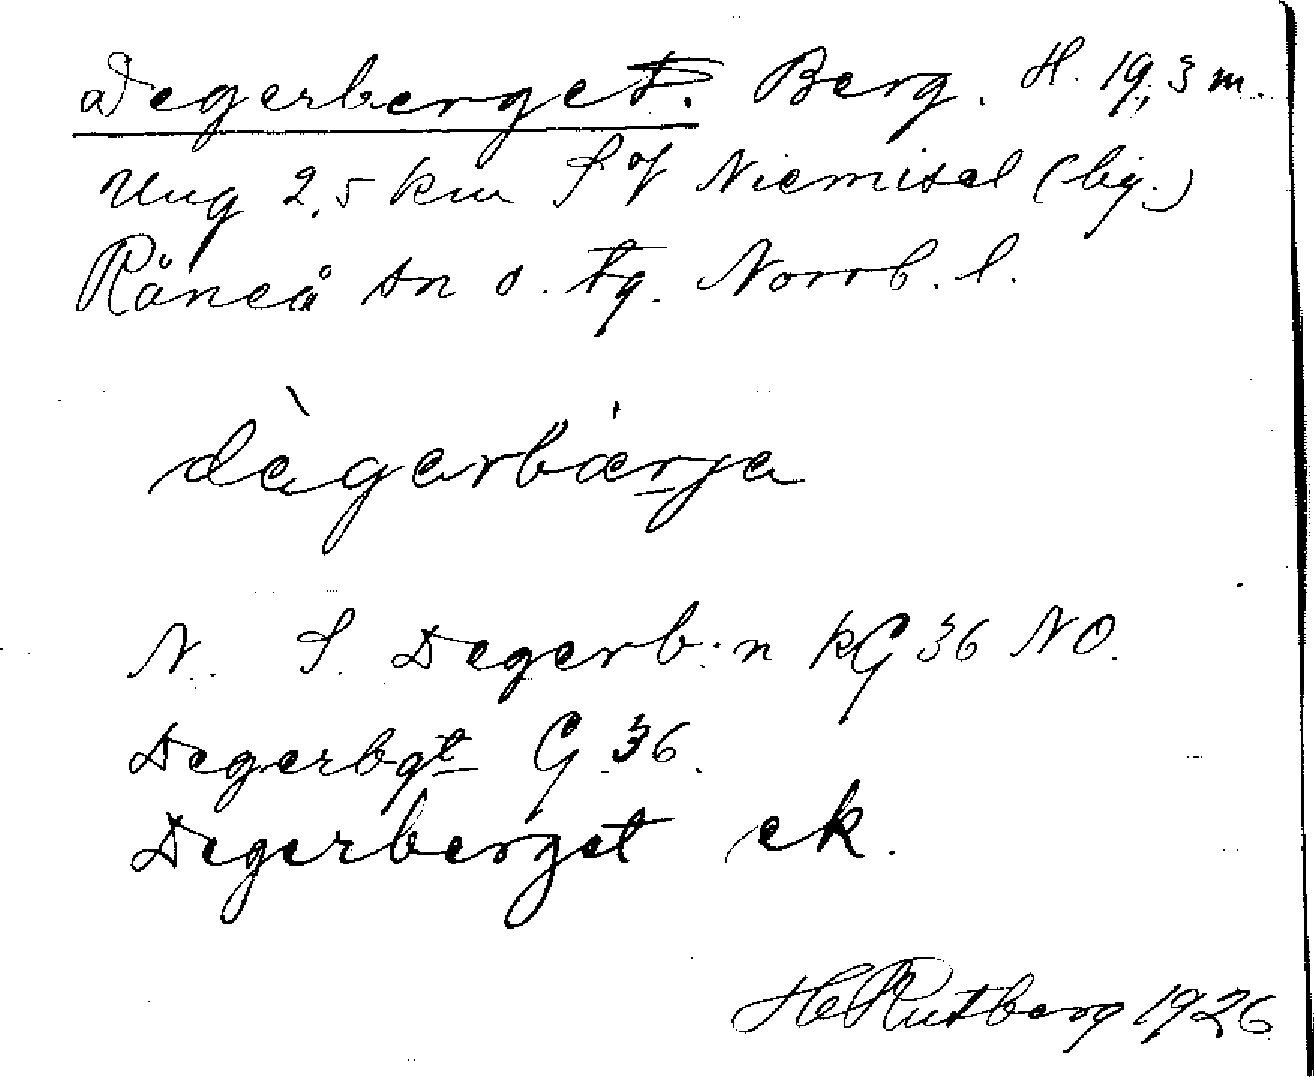 Degerberget. Berg. H. 19,3 m.
Ung 2,5 km S of Niemisel (by.)
Råneå sn o. tg. Norrb. l.
dègerbærja
N. S. Degerb:n kG 36 NO.
Degerbgt G 36.
Degerberget ek.
H Rutberg 1926